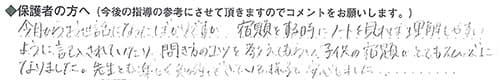 ◆保護者の方へ(今後の指導の参考にさせて頂きますのでコメントをお願いします。)
今月からお世話になったばかりですが、宿題を する時にノートを見れば理解しやすい
ように記入されていたり、聞き方のコツを教えてもらい、子供の宿題がとてもスムーズに
なりました。先生とも楽しく 様子で安心しました